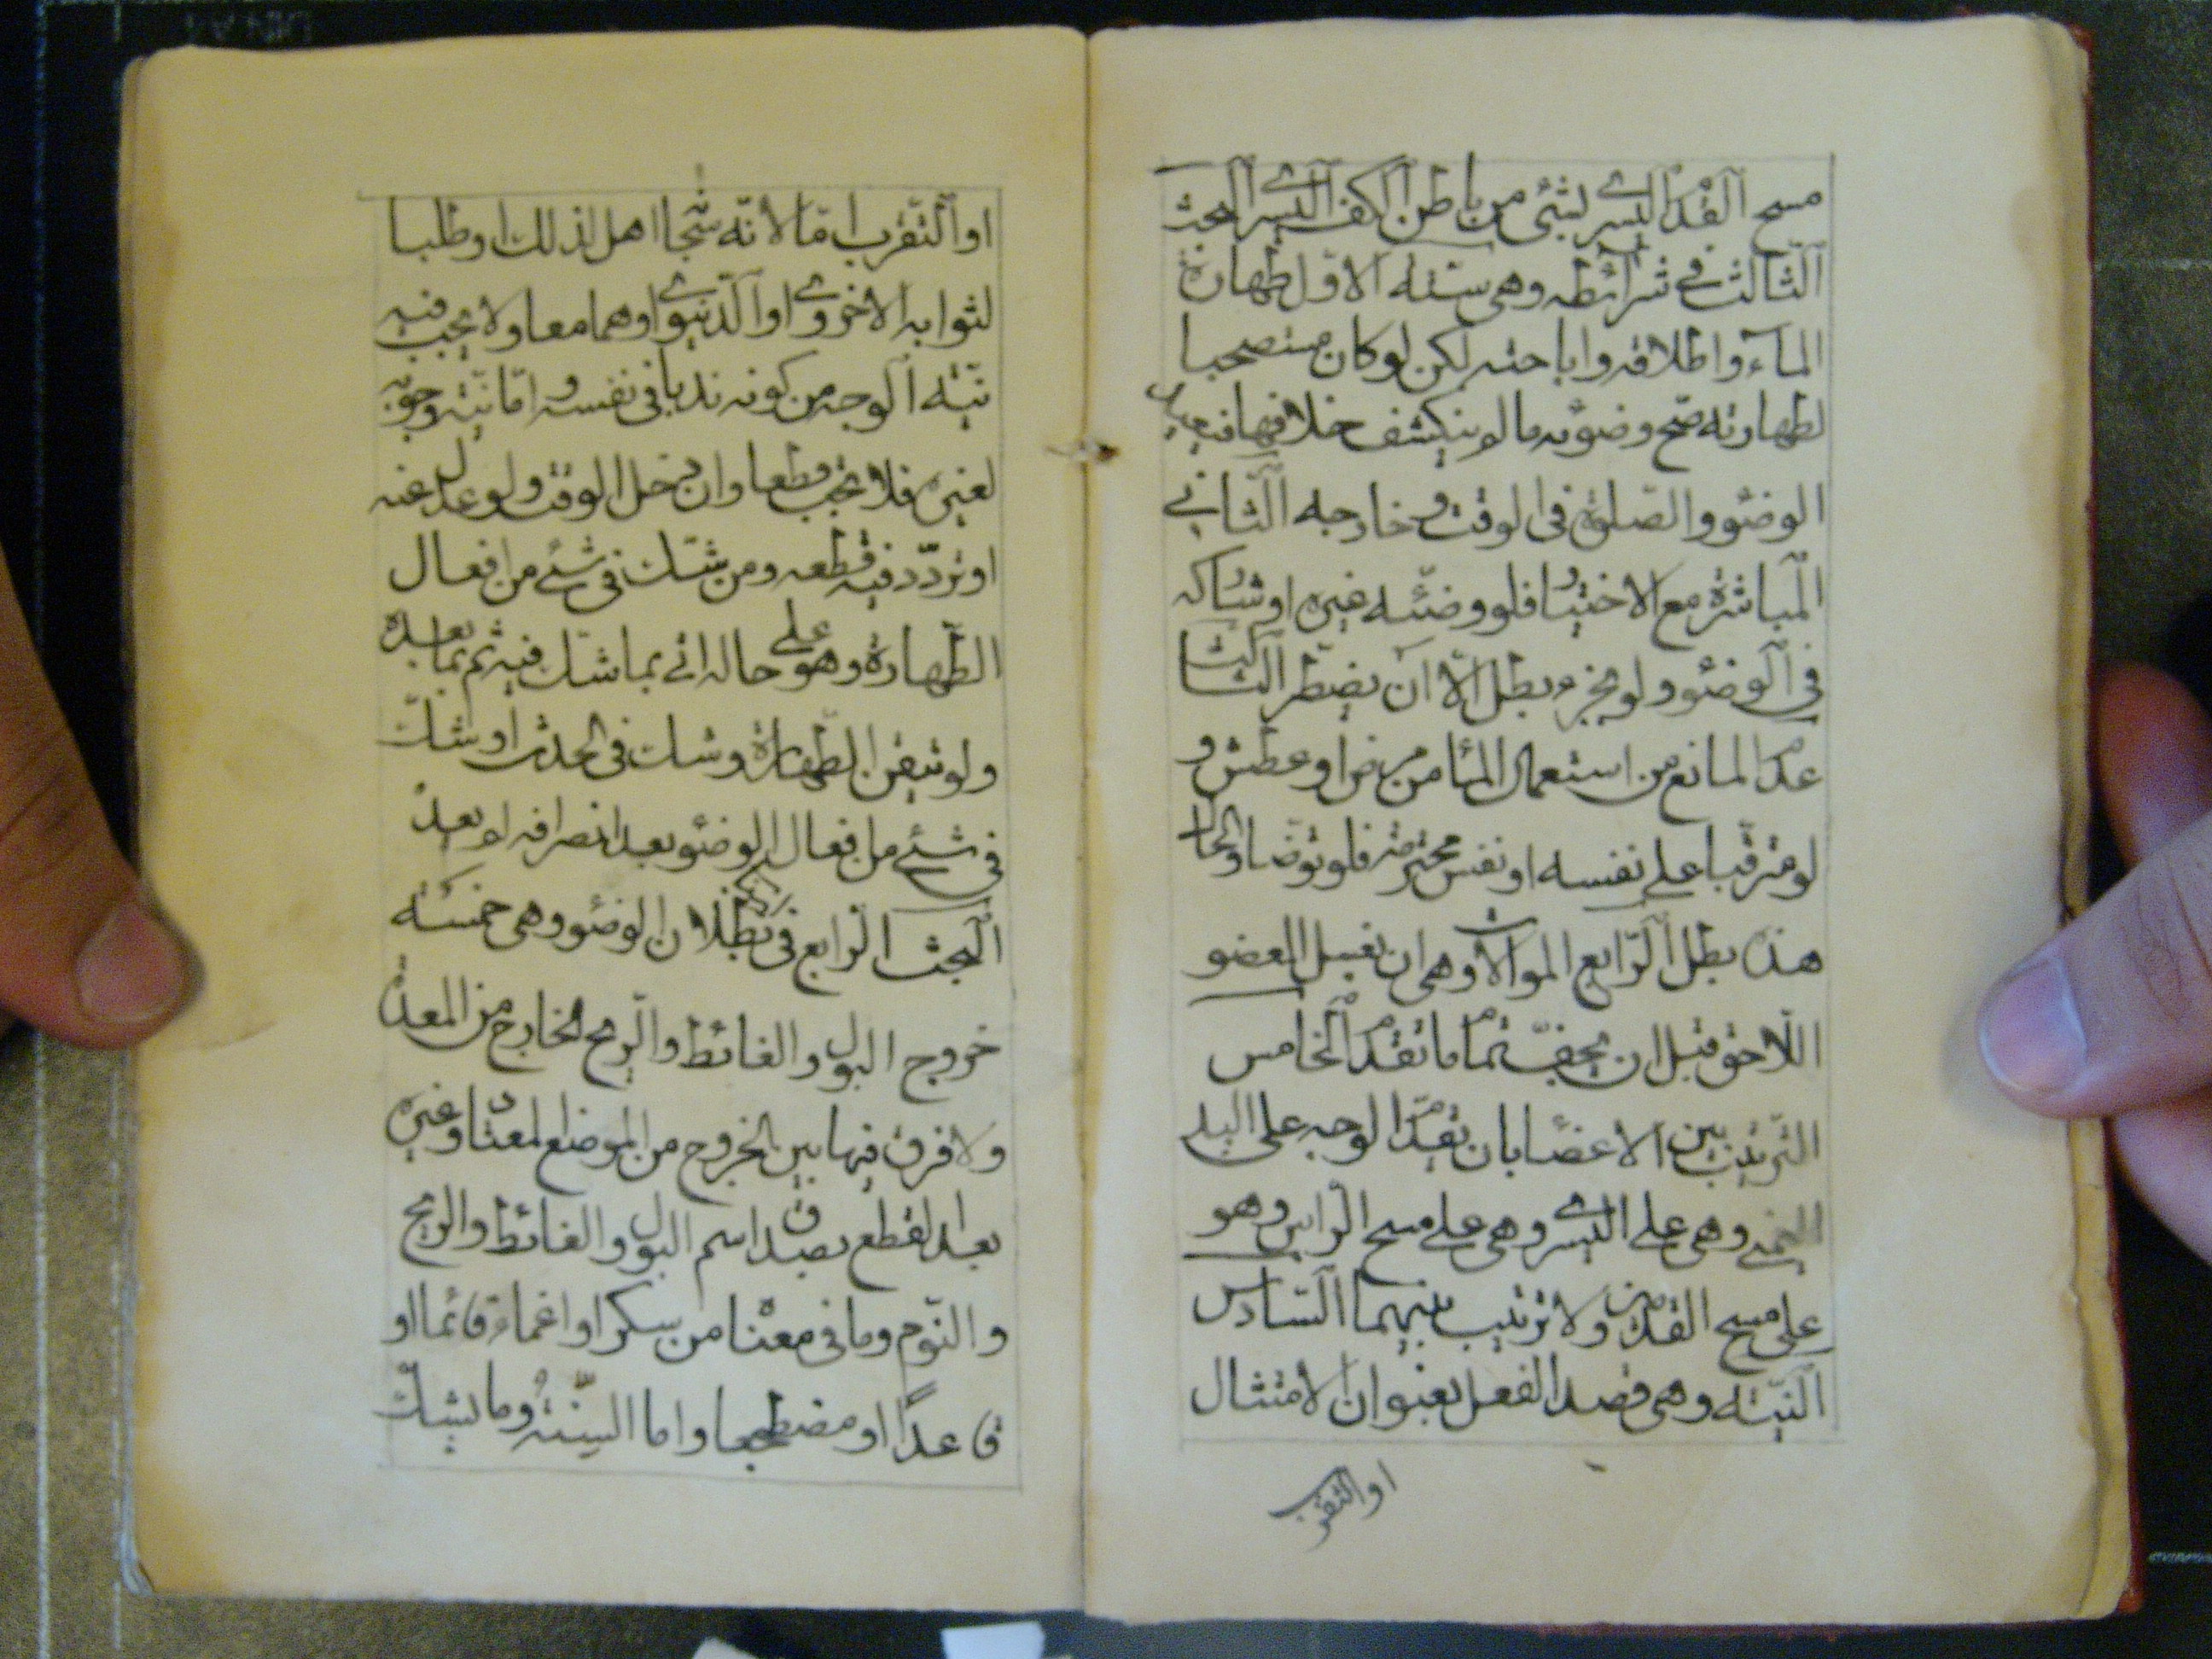 مسح القدم اليسرى بشئ من باطن الكف اليسرى البحث
الثالث فى شرائطه وهى ستة الاول طهارة
الماء واطلاقه واباحته لكن لو كان مستصحبا
لطهارته صح وضوئه ما لم ينكشف خلافها فيعيد
الوضوء والصلوة فى الوقت وخارجه الثانى
المباشرة مع الاختيار فلو وضئه غيره او شاركه
فى الوضوء ولو بجزء بطل الا ان يضطر الثالث
عدم المانع من استعمال الماء من مرض او عطش و
لو مترقبا على نفسه او نفس محترمة فلو توضا والحال
هذه بطل الرابع الموالاة وهى ان يغسل العضو
اللاحق قبل ان يجف تمام ما تقدم الخامس
الترتيب بين الاعضاء بان يقدم الوجه على اليد
اليمنى وهى على اليسرى وهى على مسح الراس وهو
على مسح القدمين ولا ترتيب بينهما السادس
النية وهى قصد الفعل بعنوان الامتثال
او التقرب
او التقرب اما لانه سبحانه اهل لذلك او طلبا
لثوابه الاخروى او الدنيوى او هما معا ولا يجب فيه
نية الوجه من كونه ندبا فى نفسه واما نية وجوبه
لغيره فلا تجب قطعا وان دخل الوقت ولو عدل عنه
او تردد فيه قطعه ومن شك فى شئ من افعال
الطهارة وهو على حاله اتى بما شك فيه ثم بما بعده
ولو تيقن الطهارة وشك فى الحدث او شك
فى شئ من افعال الوضوء بعد انصرافه لم يعد
البحث الرابع فى بطلان الوضوء وهى خمسة
خروج البول والغائط والريح الخارج من المعدة
ولا فرق فيها بين الخروج من الموضع المعتاد وغيره
بعد القطع بصدق اسم البول والغائط والريح
والنوم وما فى معناه من سكر او اغماء قائما او
قاعدا او مضطجعا واما السنة وما يشك